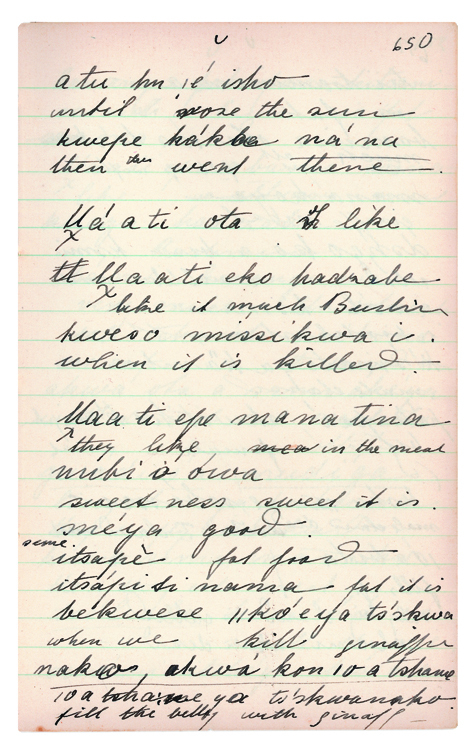 650
atu hu ié isho
until rose the sun
kwepe kákba ná na
then went there.
Uá a ti ota it like
Ua ati eko hadzabe
like it much Bush
kweso missikwa i.
when it is killed.
Uaa ti epe mana tina
they like in the meat
nubi ó ówa
sweet ness sweet it is.
méya good.
some.
itsapĕ fat food
itsápiti nama fat it is
bekwese ||kó'eya tśskwa
when we kill giraffe
akwá kon
ya tśskwanako
fill the belly with giraff